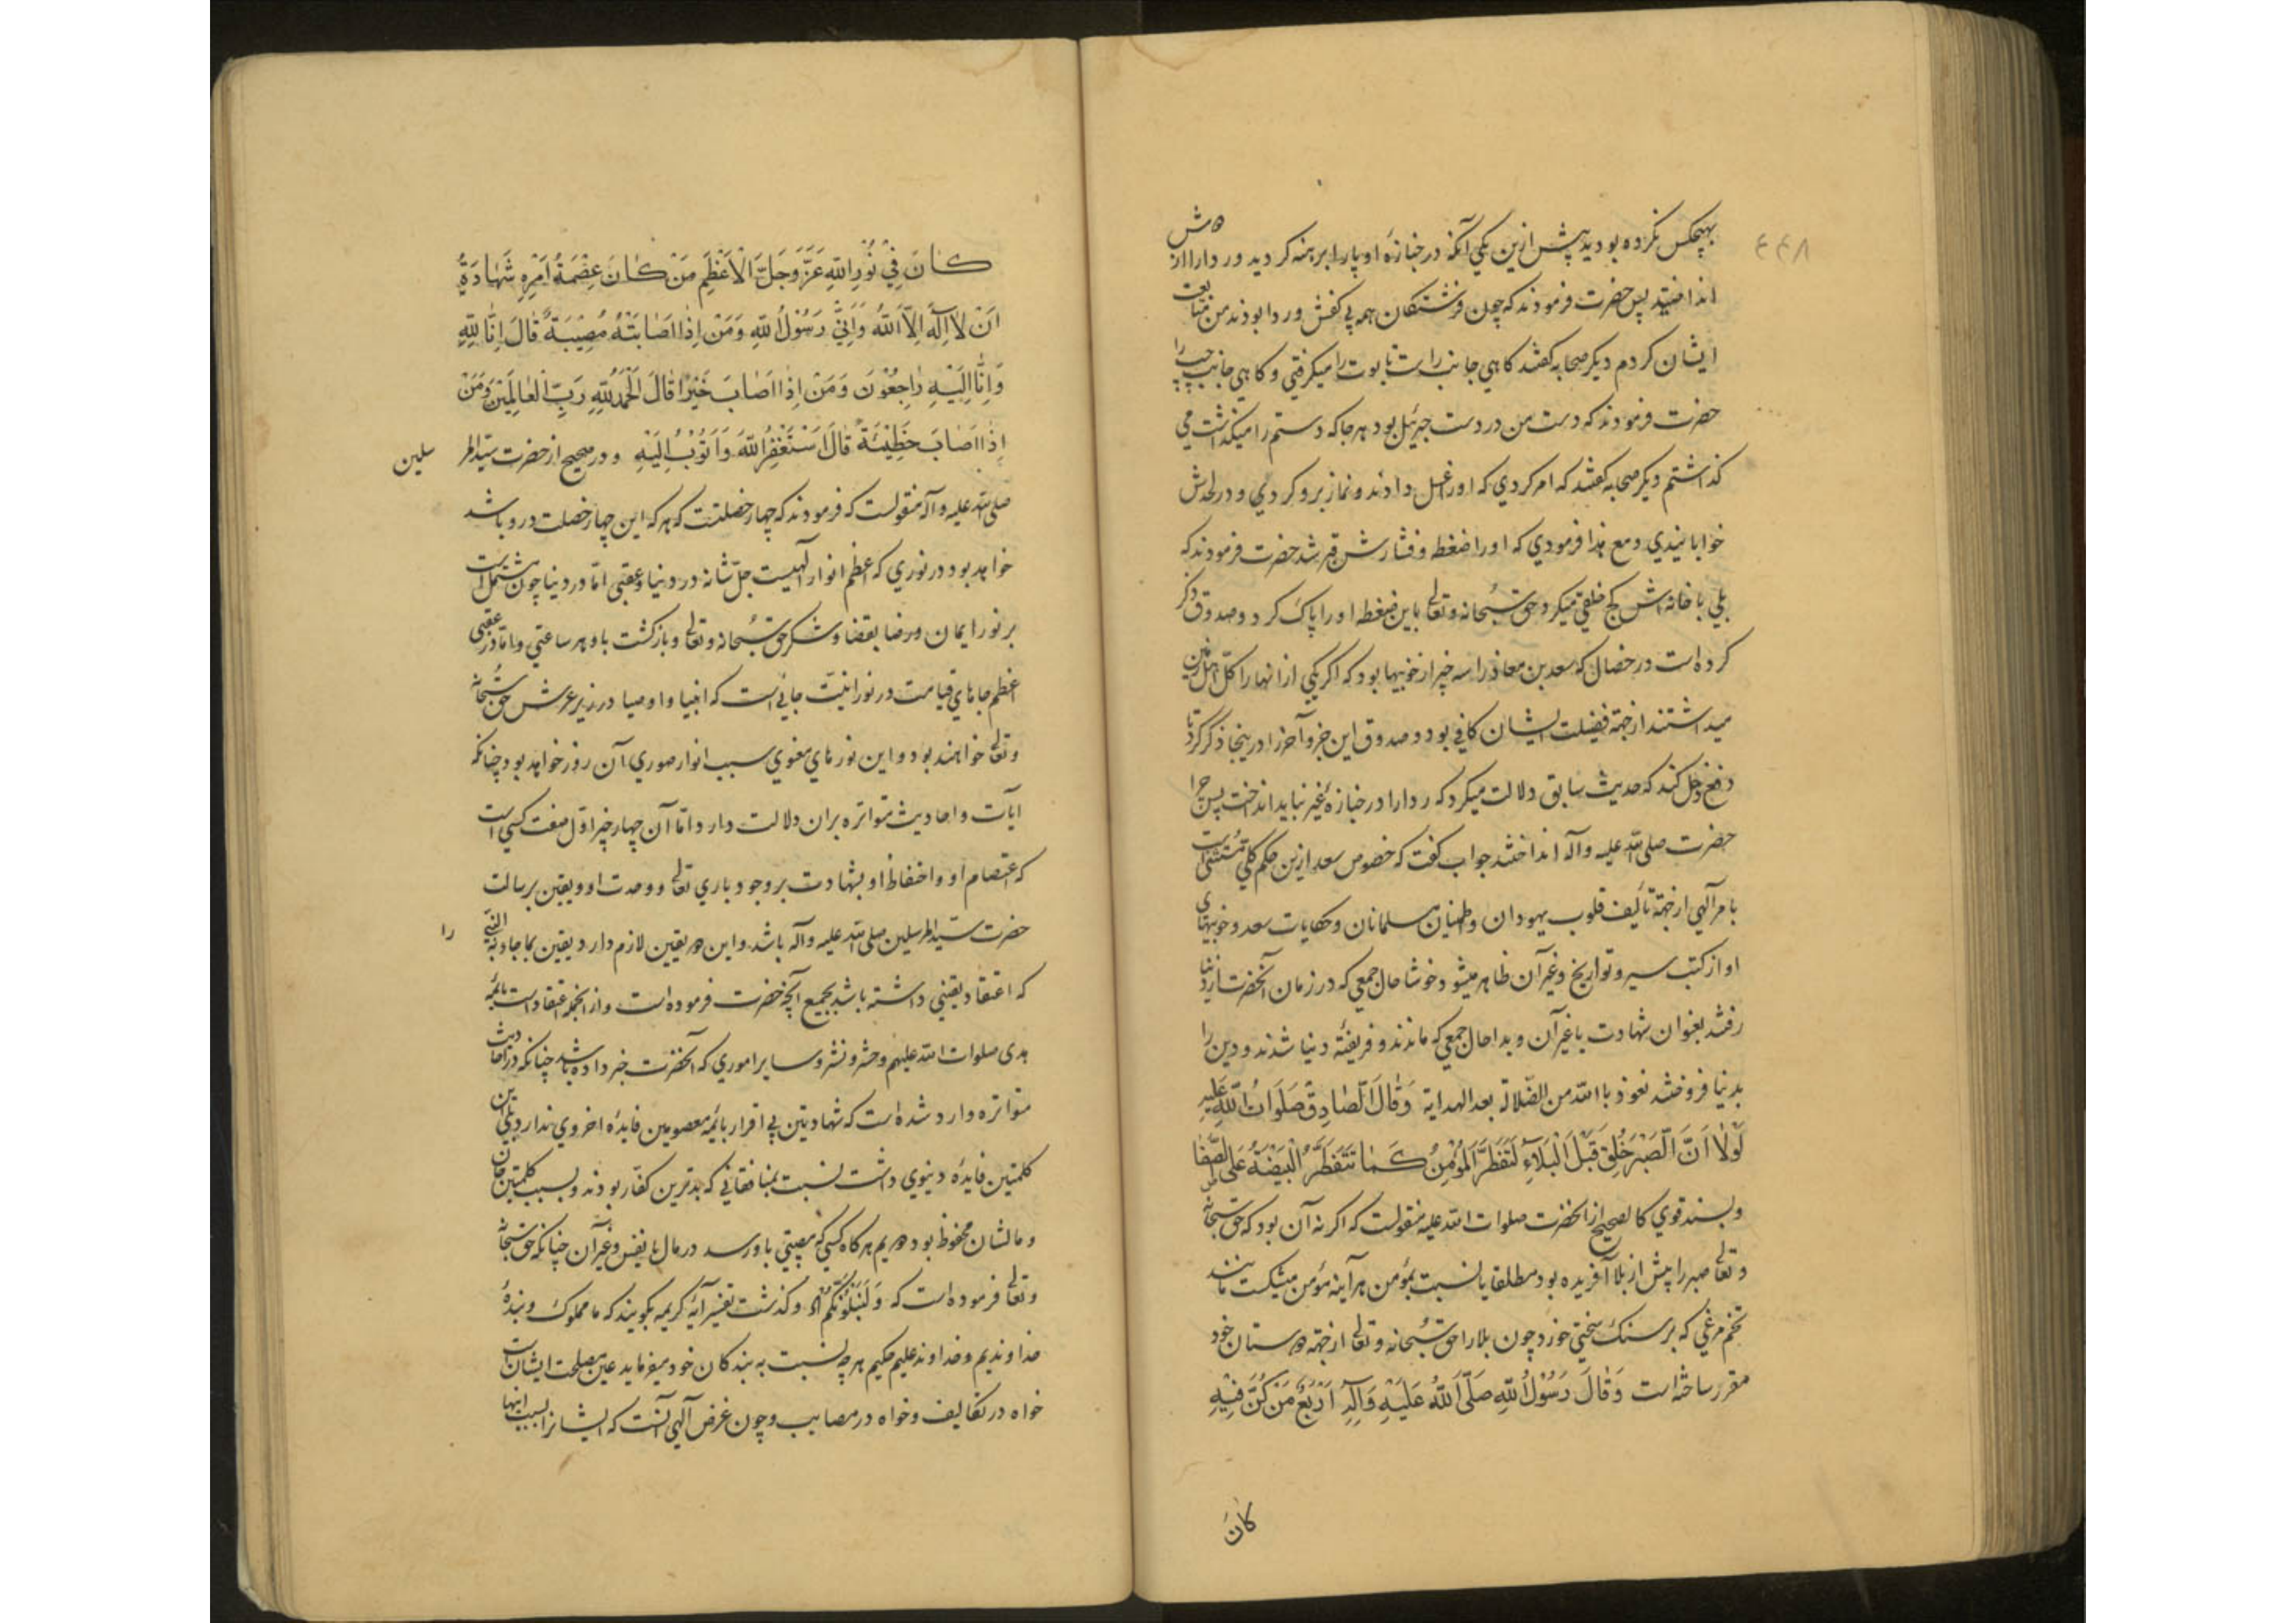 ۴۴۸
بهیچکس نکرده بودید پیش ازین یکی آنکه در جنازهٔ او پا را برهنه کردید و ردا را از دوش
انداختید پس حضرت فرمودند که چون فرشتگان همه بی کفش و ردا بودند من متابعت
ایشان کردم دیگر صحابه گفتند کاهی جانب راست تابوت را میکرفتی و کاهی جانب چپ را
حضرت فرمودند که دست من در دست جبرئیل بود هر جا که دستم را میکذاشت می
کذاشتم دیگر صحابه گفتند که امر کردی که او را غسل دادند و نماز برو کردی و در لحدش
خوابانیدی و مع هذا فرمودی که او را ضغطه و فشارش قبر شد حضرت فرمودند که
بلی با خانه‌اش کج خلقی میکرد حق سُبحانه و تعالی باین ضغطه او را پاک کرد و صدوق ذکر
کرده است در خصال که سعد بن معاذ را سه چیز از خوبیها بود که اکر یکی از انها را کلّ اهل زمین
میداشتند از جهة فضیلت ایشان کافی بود و صدوق این جزو آخر را درینجا ذکر کرد تا
دفع دخل کند که حدیث سابق دلالت میکرد که ردا را در جنازهٔ غیر نباید انداخت پس چرا
حضرت صلی الله علیه وآله انداختند جواب گفت که خصوص سعد ازین حکم کلی مستثنی است
بامر آلهی از جهة تألیف قلوب یهودان و اطمینان مسلمانان و حکایات سعد و خوبیهای
او از کتب سیر و تواریخ و غیر آن ظاهر میشود و خوشا حال جمعی که در زمان آنحضرت از دنیا
رفتند بعنوان شهادت یا غیر آن و بدا حال جمعی که ماندند و فریفتهٔ دنیا شدند و دین را
بدنیا فروختند نعوذ باالله من الضّلالة بعد الهدایة وَقَالَ الصَّادِقُ صَلَوَاتُ اللهِ عَلَيْهِ
لَوْلَا اَنَّ الصَّبْرَ خُلِقَ قَبْلَ الْبَلَاءِ لَتَفَطَّرَ الْمُؤْمِنُ كَمَا تَتَفَطَّرُ الْبَيْضَةُ عَلَى الصَّفَا
و بسند قوی کالصحیح از آنحضرت صلوات الله علیه منقولست که اکر نه آن بود که حق سبحانه
و تعالی صبر را پیش از بلا آفریده بود مطلقا یا نسبت بمؤمن هر آینه مؤمن میشکست مانند
تخم مرغی که بر سنک سختی خورد چون بلا را حق سُبحانه و تعالی از جهة دوستان خود
مقرر ساخته است وَقَالَ رَسُولُ اللهِ صَلَّى اللهُ عَلَيْهِ وَآلِهِ اَرْبَعٌ مَنْ كُنَّ فِيْهِ
كانَ
كَانَ فِيْ نُوْرِ اللهِ عَزَّ وَجَلَّ الْاَعْظَمِ مَنْ كَانَ عِصْمَةُ اَمْرِهِ شَهَادَةُ
اَنْ لَا اِلَهَ اِلَّا اللهُ وَاَنِّيْ رَسُوْلُ اللهِ وَمَنْ اِذَا اَصَابَتْهُ مُصِيْبَةٌ قَالَ اِنَّا لِلّٰهِ
وَاِنَّا اِلَيْهِ رَاجِعُوْنَ وَمَنْ اِذَا اَصَابَ خَيْرًا قَالَ الْحَمْدُ لِلّٰهِ رَبِّ الْعَالَمِيْنَ وَمَنْ
اِذَا اَصَابَ خَطِيْئَةً قَالَ اَسْتَغْفِرُ اللهَ وَاَتُوْبُ اِلَيْهِ و در صحیح از حضرت سیّد المرسلین
صلی الله علیه وآله منقولست که فرمودند که چهار خصلتست که هر که این چهار خصلت درو باشد
خواهد بود در نوری که اعظم انوار آلهیست جلّ شانه در دنیا و عقبی امّا در دنیا چون مشتمل است
بر نور ایمان و رضا بقضا و شکر حق سُبحانه و تعالی و بازکشت باو هر ساعتی و امّا در عقبی
اعظم جاهای قیامت در نورانیّت جائی است که انبیا و اوصیا در زیر عرش حق سُبحانه
و تعالی خواهند بود و این نورهای معنوی سبب انوار صوری آن روز خواهد بود چنانکه
ایآت و احادیث متواتره بران دلالت دارد امّا آن چهار چیز اوّل صفت کسی است
که اعتصام او و احتفاظ او بشهادت بر وجود باری تعالی و وحدت او و یقین برسالت
حضرت سیّد المرسلین صلی الله علیه وآله باشد و این دو یقین لازم دارد یقین بما جاء به النبی را
که اعتقاد یقینی داشته باشد بجمیع آنچه حضرت فرموده است و از انجمله اعتقاد است بائمه
هدی صلوات الله علیهم و حشر و نشر و سایر اموری که آنحضرت خبر داده باشد چنانکه در احادیث
متواتره وارد شده است که شهادتین بی اقرار بائمه معصومین فایدهٔ اخروی ندارد بلی این
کلمتین فایدهٔ دنیوی داشت نسبت بمنافقانی که بدترین کفار بودند و بسبب کلمتین جان
و مالشان محفوظ بود دویم هر کاه کسی که مصیبتی باو رسد در مال یا نفس و غیر آن چنانکه حق سبحانه
و تعالی فرموده است که وَلَنَبْلُوَنَّكُمْ اه و کذشت تفسیر آیهٔ کریمه بکویند که ما مملوک و بندهٔ
خداوندیم و خداوند علیم حکیم هر چه نسبت به بندکان خود میفرماید عین مصلحت ایشان است
خواه در تکالیف و خواه در مصایب و چون غرض آلهی آنست که ایشانرا بسبب اینها